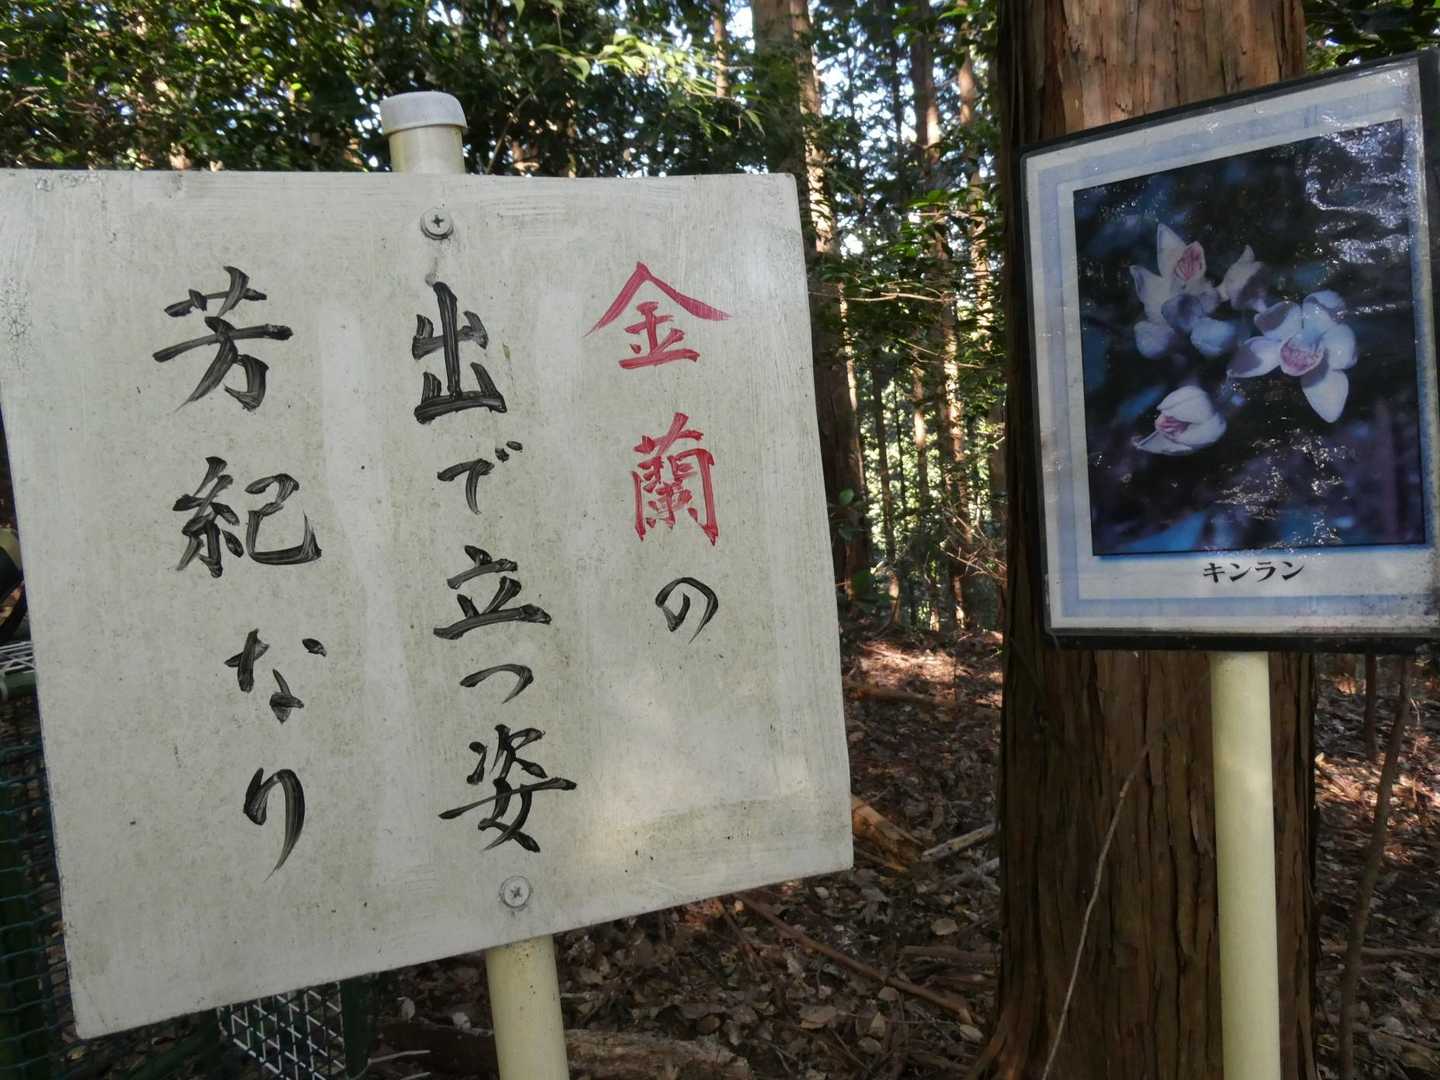 金蘭の
出で立つ姿
芳紀なり
キンラン